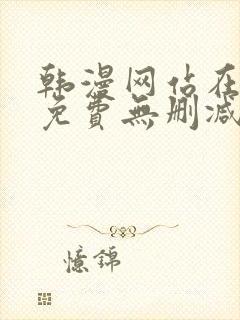 韩漫网站在
免費無删减
憶錦